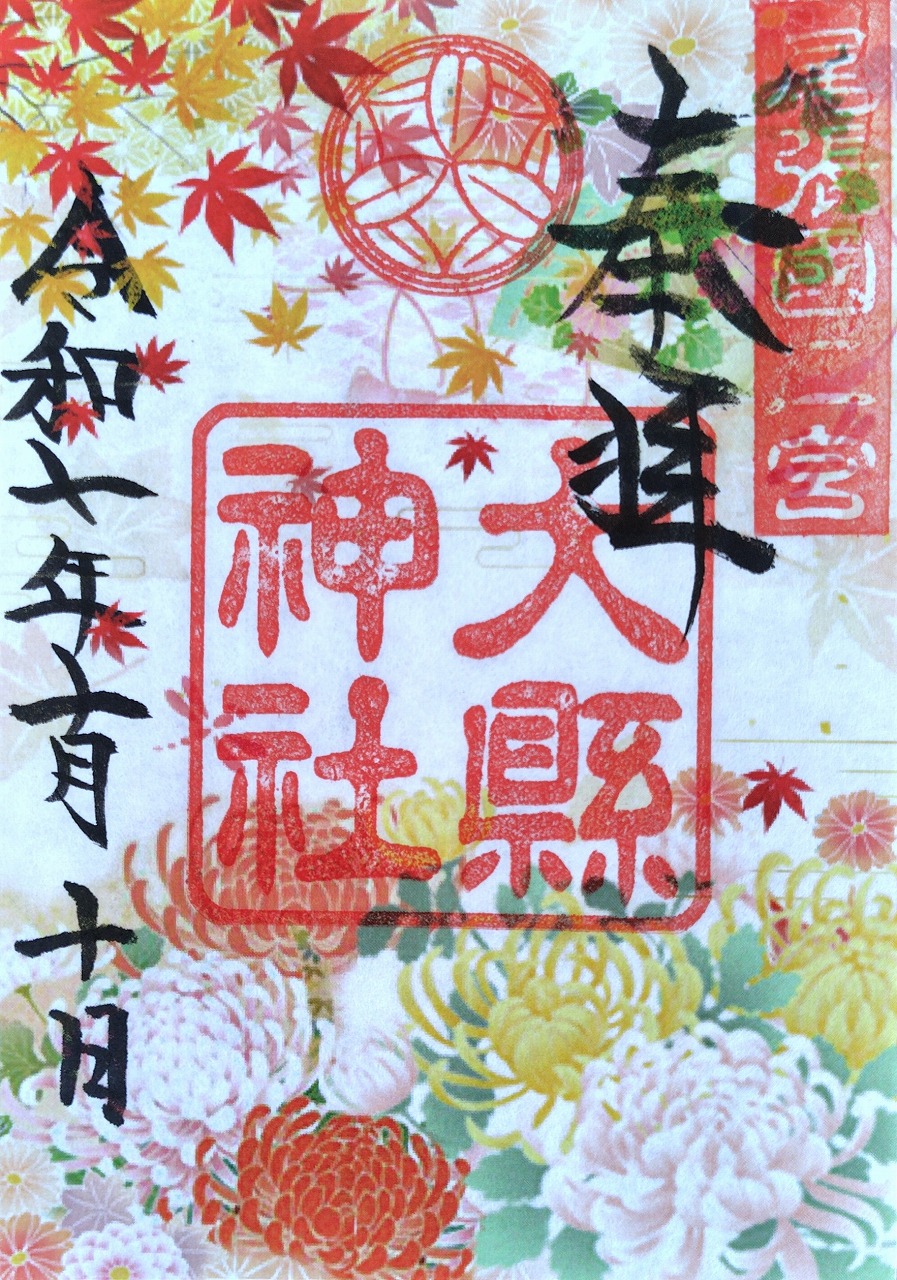 尾張國二宮
奉拝
大縣
神社
令和七年十月十日